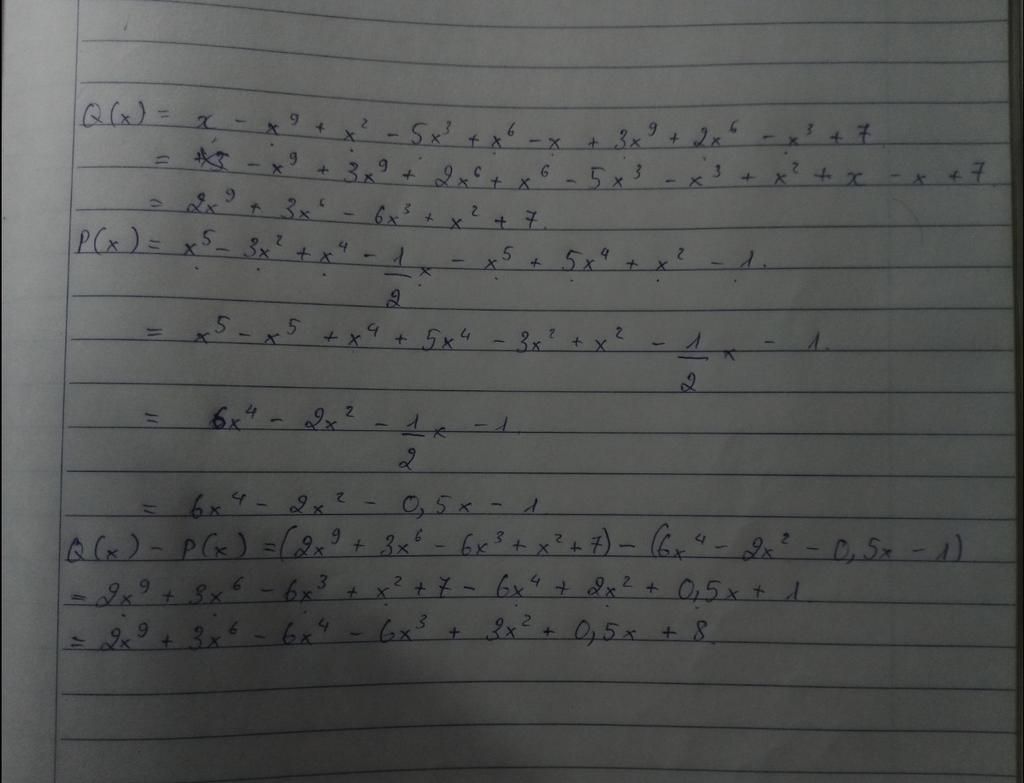 Q(x) = x - x⁹ + x² - 5x³ + x⁶ - x + 3x⁹ + 2x⁶ - x³ + 7
= - x⁹ + 3x⁹ + 2x⁶ + x⁶ - 5x³ - x³ + x² + x - x + 7
= 2x⁹ + 3x⁶ - 6x³ + x² + 7.
P(x) = x⁵ - 3x² + x⁴ - 1/2 x - x⁵ + 5x⁴ + x² - 1.
= x⁵ - x⁵ + x⁴ + 5x⁴ - 3x² + x² - 1/2 x - 1.
= 6x⁴ - 2x² - 1/2 x - 1.
= 6x⁴ - 2x² - 0,5x - 1
Q(x) - P(x) = (2x⁹ + 3x⁶ - 6x³ + x² + 7) - (6x⁴ - 2x² - 0,5x - 1)
= 2x⁹ + 3x⁶ - 6x³ + x² + 7 - 6x⁴ + 2x² + 0,5x + 1
= 2x⁹ + 3x⁶ - 6x⁴ - 6x³ + 3x² + 0,5x + 8.